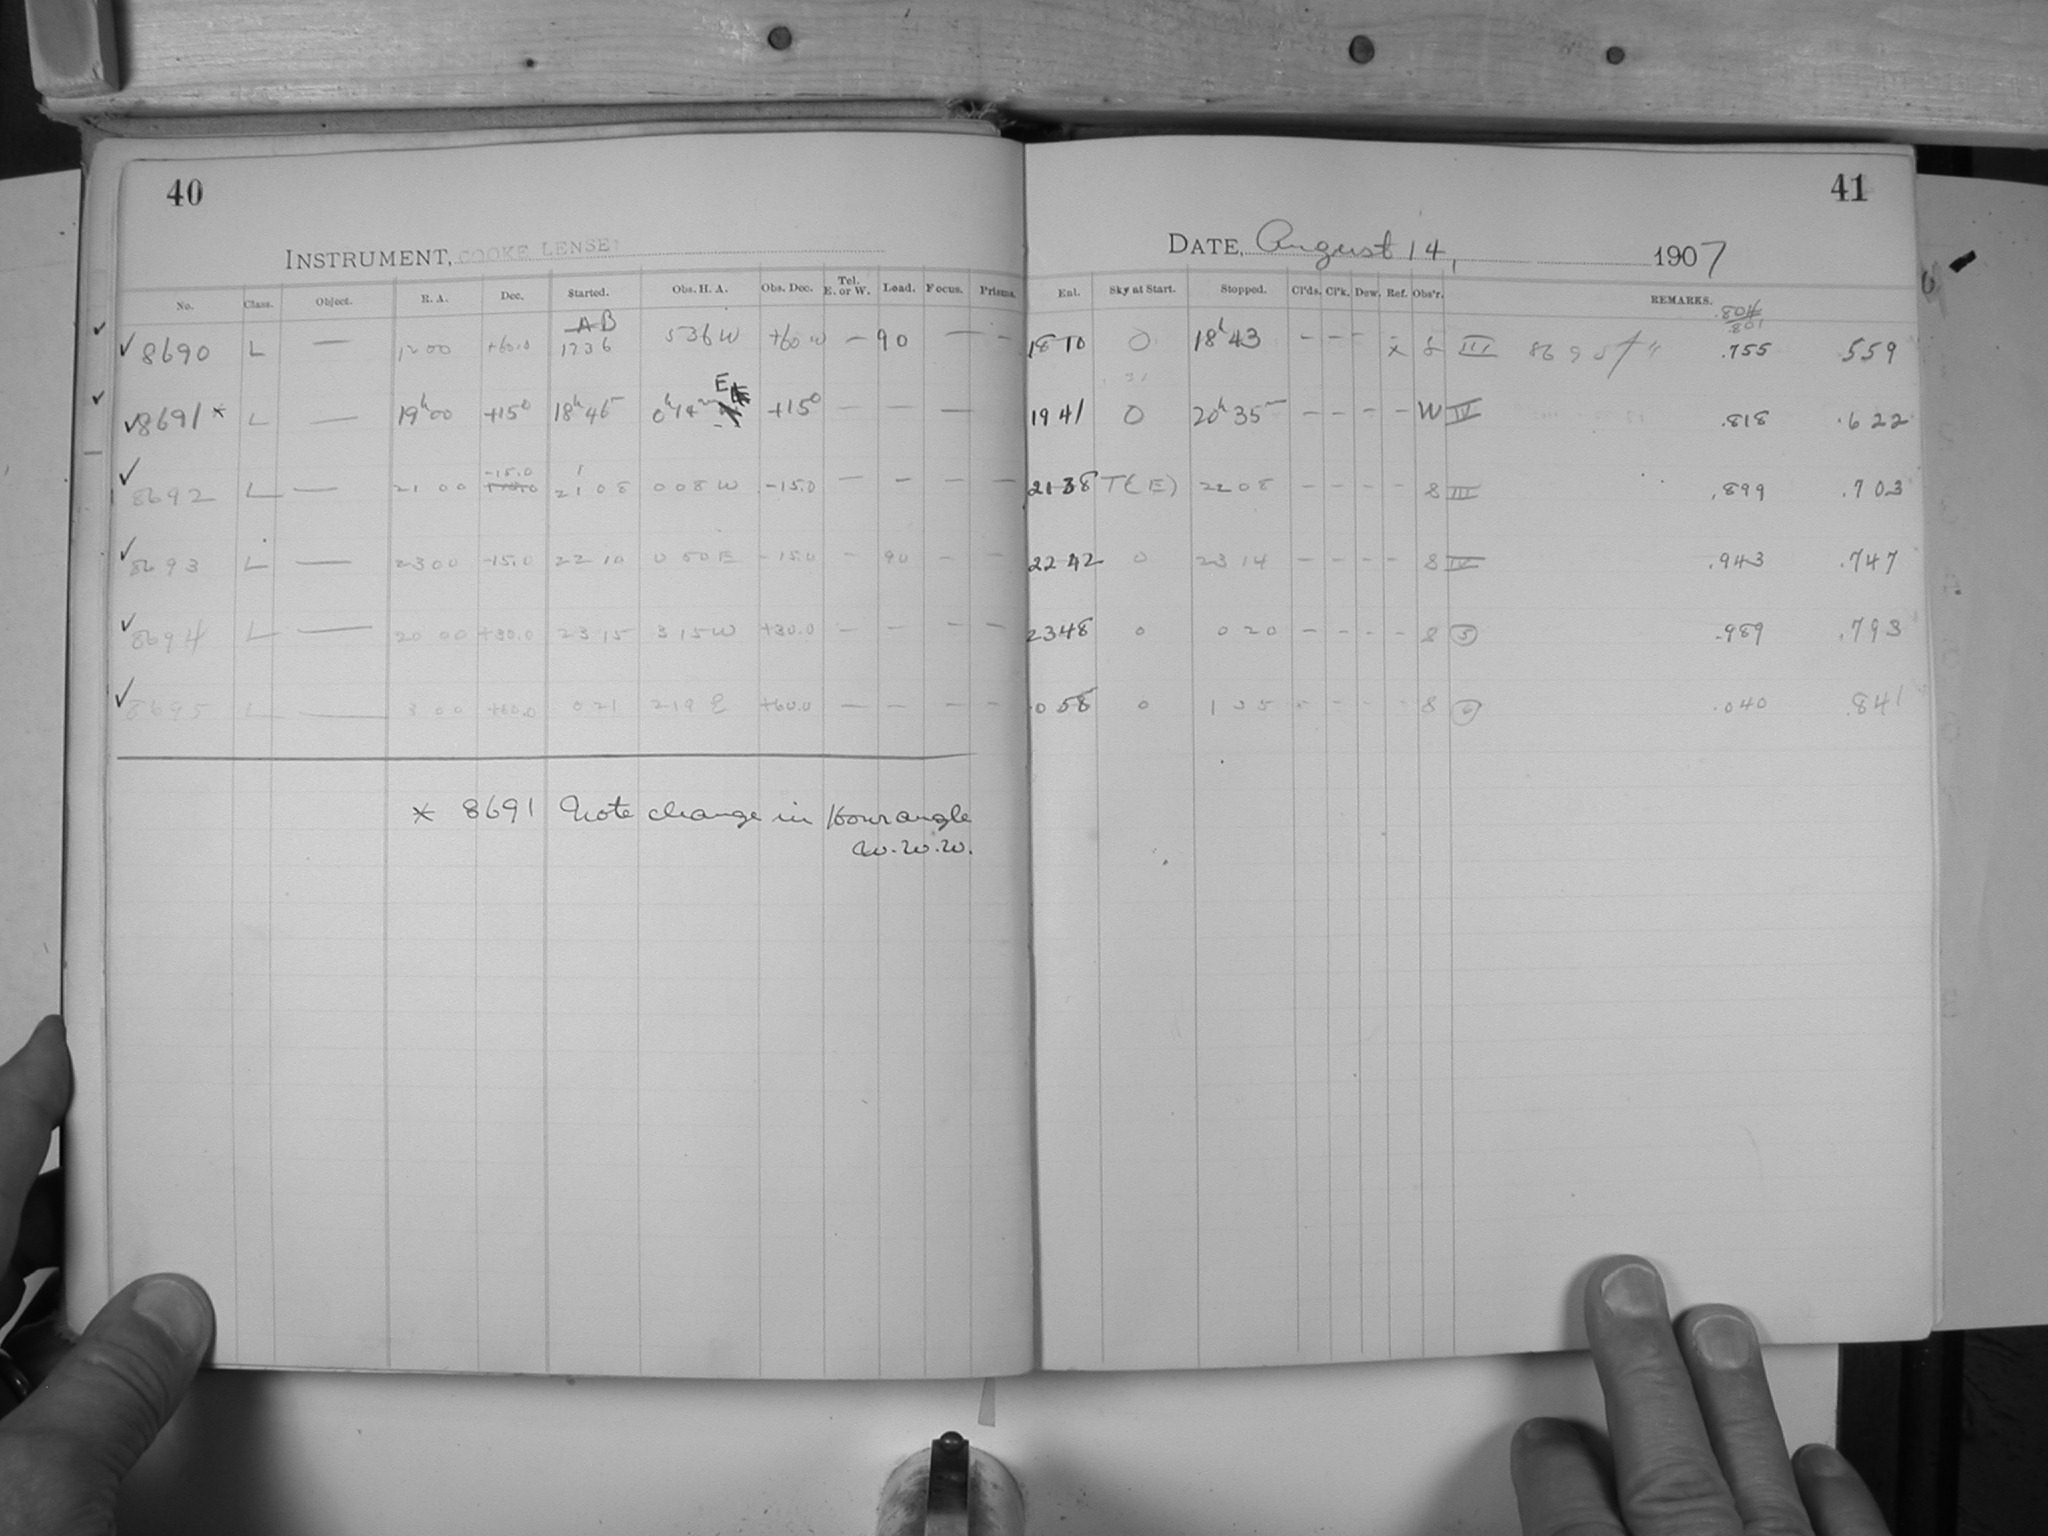 40
INSTRUMENT, COOKE LENSE
No. Class. Object. R. A. Dec. Started. Obs. H. A. Obs. Dec. Tel. E. or W. Load. Focus. Prisms.
8690 L — 12 00 +60.0 AB 536 W +60 — 90 — —
8691 * L — 19h 00 +15° 18h 45 E +15° — — —
8692 L — 21 00 -15.0 21 08 0 08 W -15.0 — — — —
8693 L — 23 00 -15.0 22 10 0 50 E -15.0 — 90 — —
8694 L — 20 00 +30.0 23 15 3 15 W +30.0 — — — —
8695 L — 3 00 +60.0 0 21 2 19 E +60.0 — — — —
* 8691 Note change in Hour angle
W.W.W.
41
DATE, August 14, 1907
Ent. Sky at Start. Stopped. Cl'ds. Cl'k. Dew. Ref. Obs'r. REMARKS.
.804
.801
18 10 0 18h 43 — — — x III .755 .559
19 41 0 20h 35 — — — — W IV .818 .622
21 38 T(E) 22 08 — — — — 8 III .899 .703
22 42 0 23 14 — — — — 8 IV .943 .747
23 48 0 0 20 — — — — 8 5 .989 .793
0 58 0 — — — — 8 .040 .841